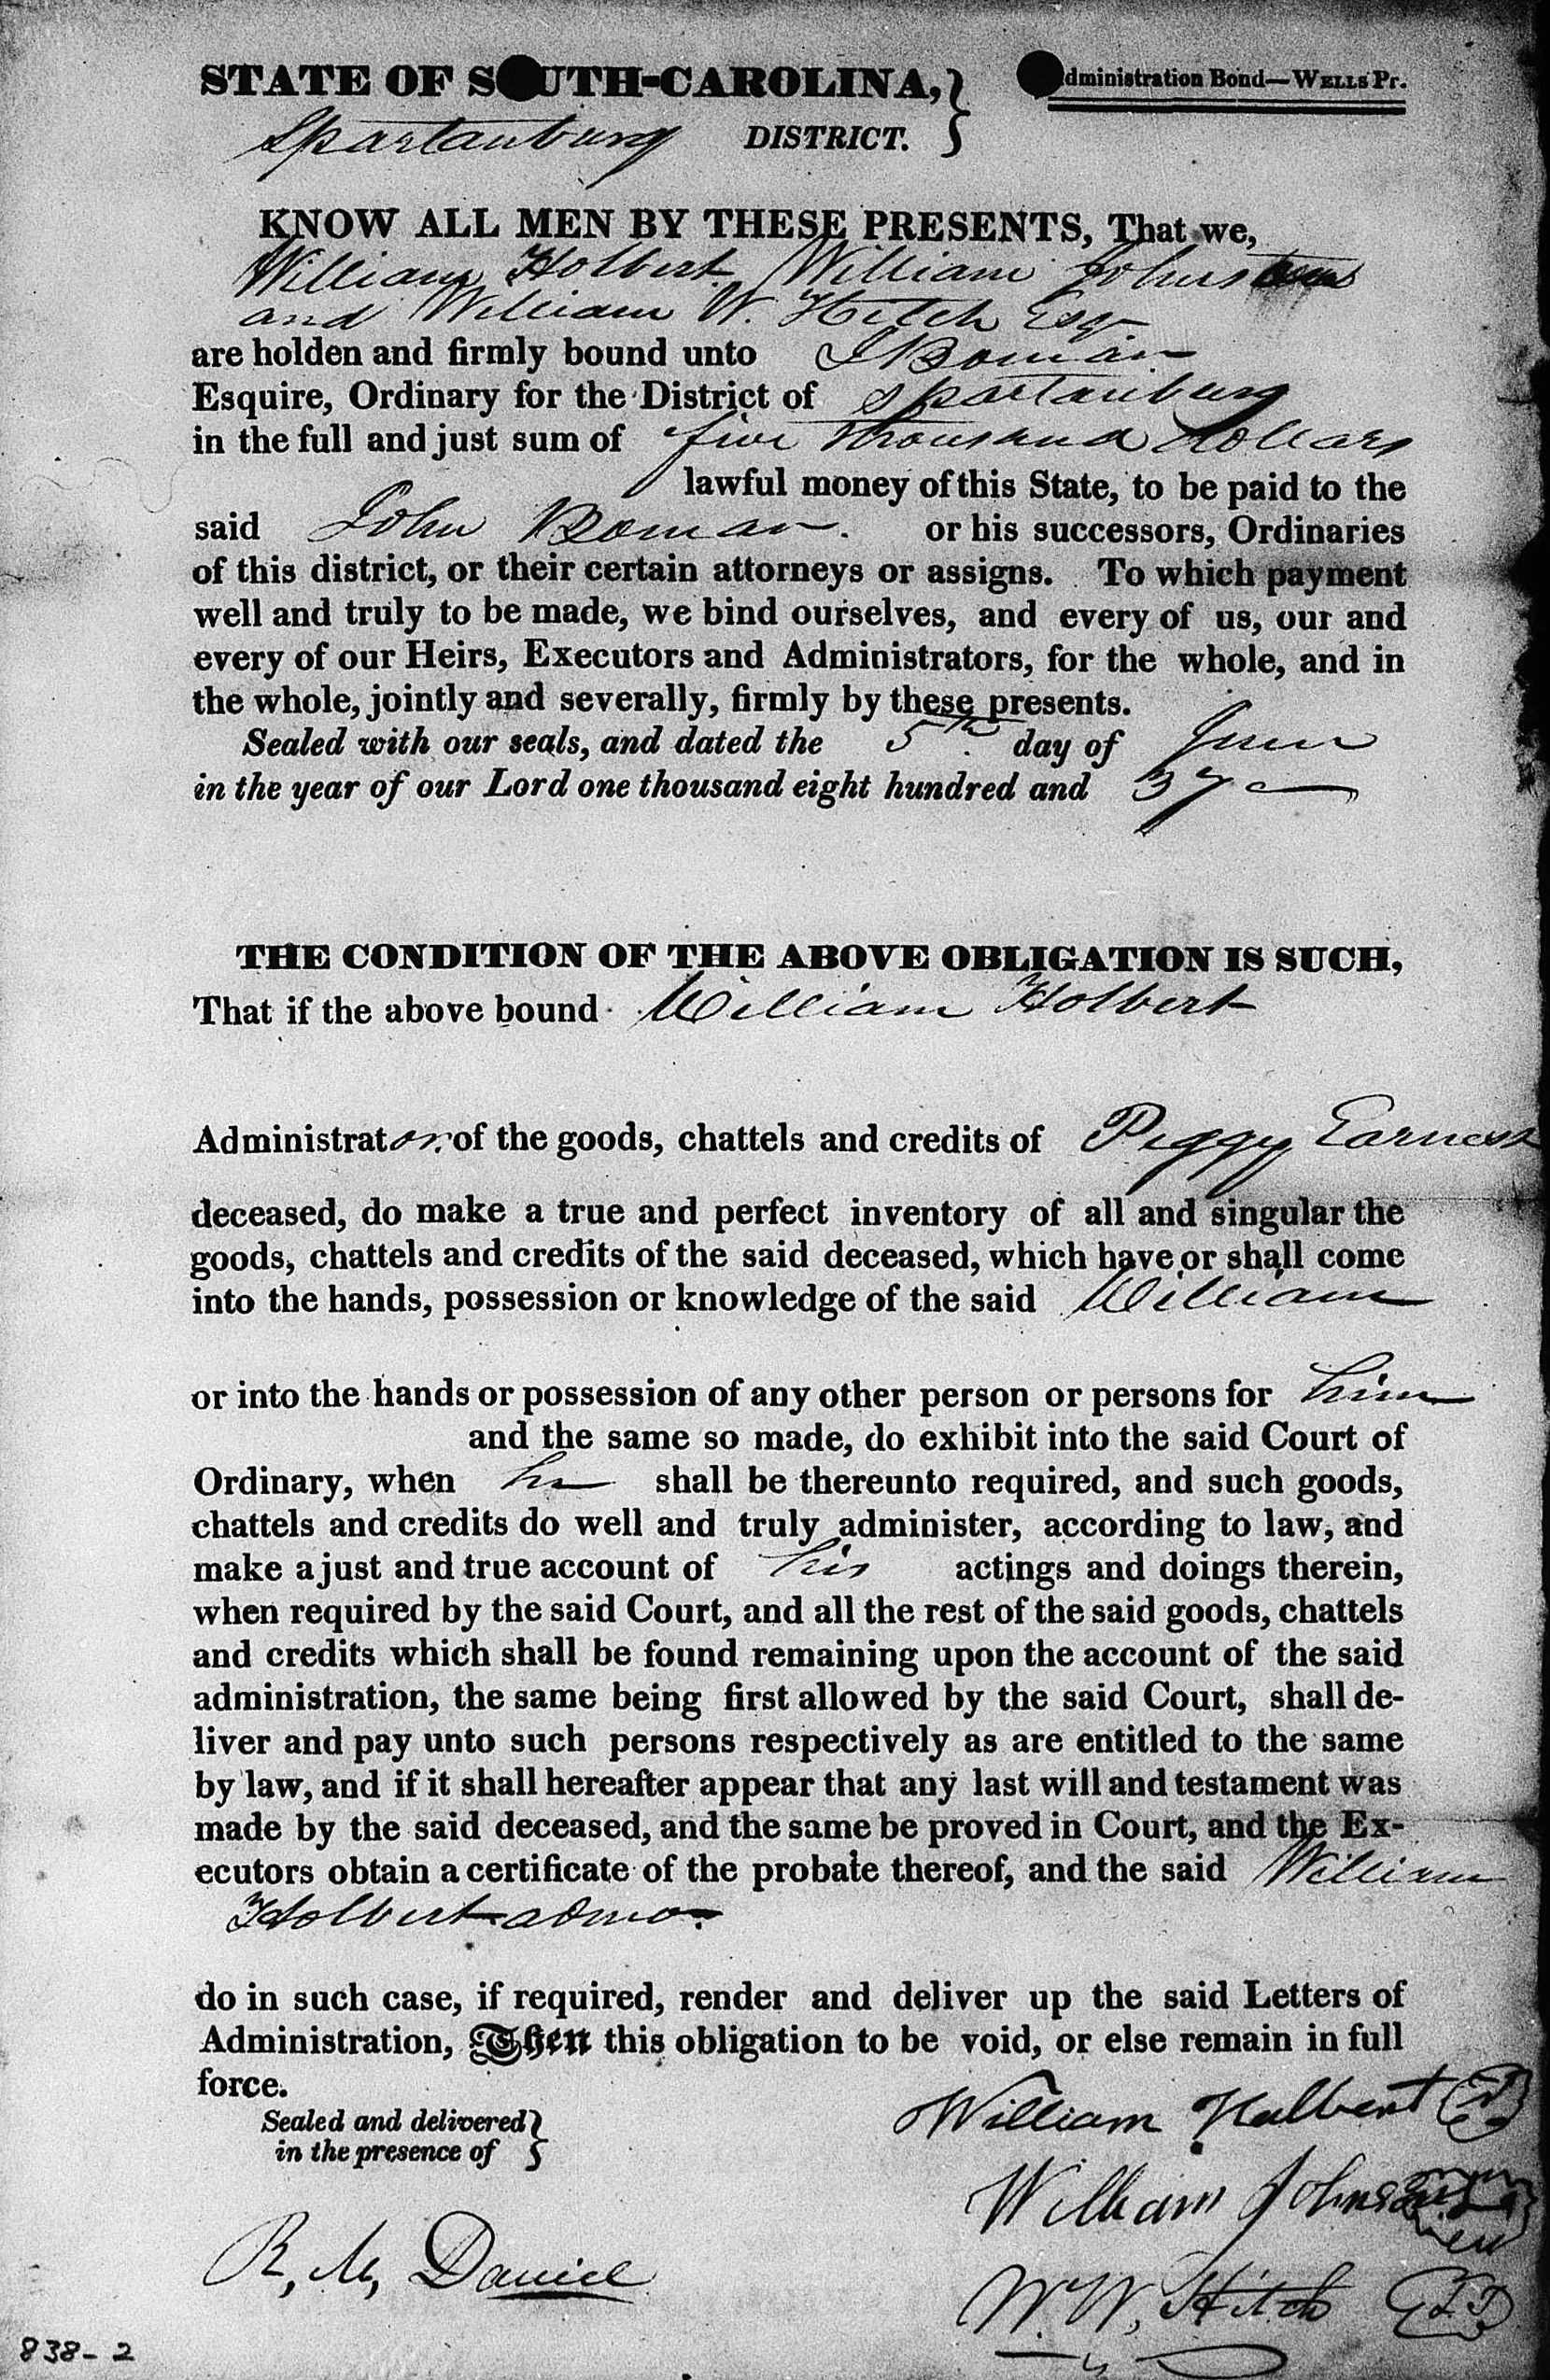 STATE OF SOUTH-CAROLINA, } Administration Bond—WELLS Pr.
Spartanburg DISTRICT. }
KNOW ALL MEN BY THESE PRESENTS, That we,
William Holbert William
and William W. Hitch Esqr
are holden and firmly bound unto J Bomar
Esquire, Ordinary for the District of Spartanburg
in the full and just sum of five thousand dollars
lawful money of this State, to be paid to the
said John Bomar. or his successors, Ordinaries
of this district, or their certain attorneys or assigns. To which payment
well and truly to be made, we bind ourselves, and every of us, our and
every of our Heirs, Executors and Administrators, for the whole, and in
the whole, jointly and severally, firmly by these presents.
Sealed with our seals, and dated the 5th day of June
in the year of our Lord one thousand eight hundred and 37
THE CONDITION OF THE ABOVE OBLIGATION IS SUCH,
That if the above bound William Holbert
Administrator of the goods, chattels and credits of Peggy Earnest
deceased, do make a true and perfect inventory of all and singular the
goods, chattels and credits of the said deceased, which have or shall come
into the hands, possession or knowledge of the said William
or into the hands or possession of any other person or persons for him
and the same so made, do exhibit into the said Court of
Ordinary, when he shall be thereunto required, and such goods,
chattels and credits do well and truly administer, according to law, and
make a just and true account of his actings and doings therein,
when required by the said Court, and all the rest of the said goods, chattels
and credits which shall be found remaining upon the account of the said
administration, the same being first allowed by the said Court, shall de-
liver and pay unto such persons respectively as are entitled to the same
by law, and if it shall hereafter appear that any last will and testament was
made by the said deceased, and the same be proved in Court, and the Ex-
ecutors obtain a certificate of the probate thereof, and the said William
Holbert admor.
do in such case, if required, render and deliver up the said Letters of
Administration, Then this obligation to be void, or else remain in full
force.
Sealed and delivered }
in the presence of }
William Halbert
William
R, M, Daniel
W. W. Hitch
838-2